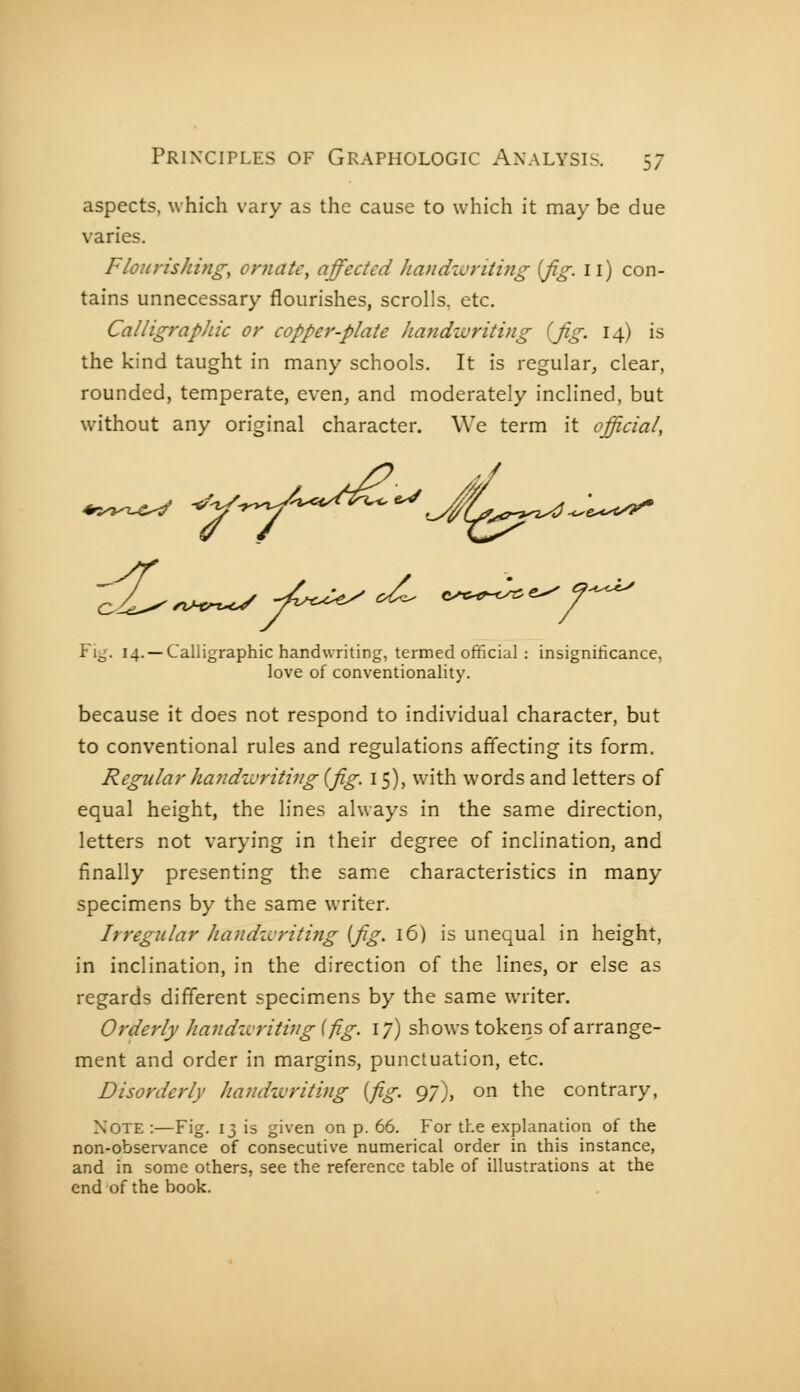 PRINCIPLES OF GRAPHOLOGIC ANALYSIS. 57
aspects, which vary as the cause to which it may be due
varies.
Flourishing, ornate, affected handwriting (fig. 11) con-
tains unnecessary flourishes, scrolls, etc.
Calligraphic or copper-plate handwriting (fig. 14) is
the kind taught in many schools. It is regular, clear,
rounded, temperate, even, and moderately inclined, but
without any original character. We term it official,
Fig. 14.—Calligraphic handwriting, termed official : insignificance,
love of conventionality.
because it does not respond to individual character, but
to conventional rules and regulations affecting its form.
Regular handwriting (fig. 15), with words and letters of
equal height, the lines always in the same direction,
letters not varying in their degree of inclination, and
finally presenting the same characteristics in many
specimens by the same writer.
Irregular handwriting (fig. 16) is unequal in height,
in inclination, in the direction of the lines, or else as
regards different specimens by the same writer.
Orderly handwriting (fig. 17) shows tokens of arrange-
ment and order in margins, punctuation, etc.
Disorderly handwriting (fig. 97), on the contrary,
NOTE :—Fig. 13 is given on p. 66. For the explanation of the
non-observance of consecutive numerical order in this instance,
and in some others, see the reference table of illustrations at the
end of the book.